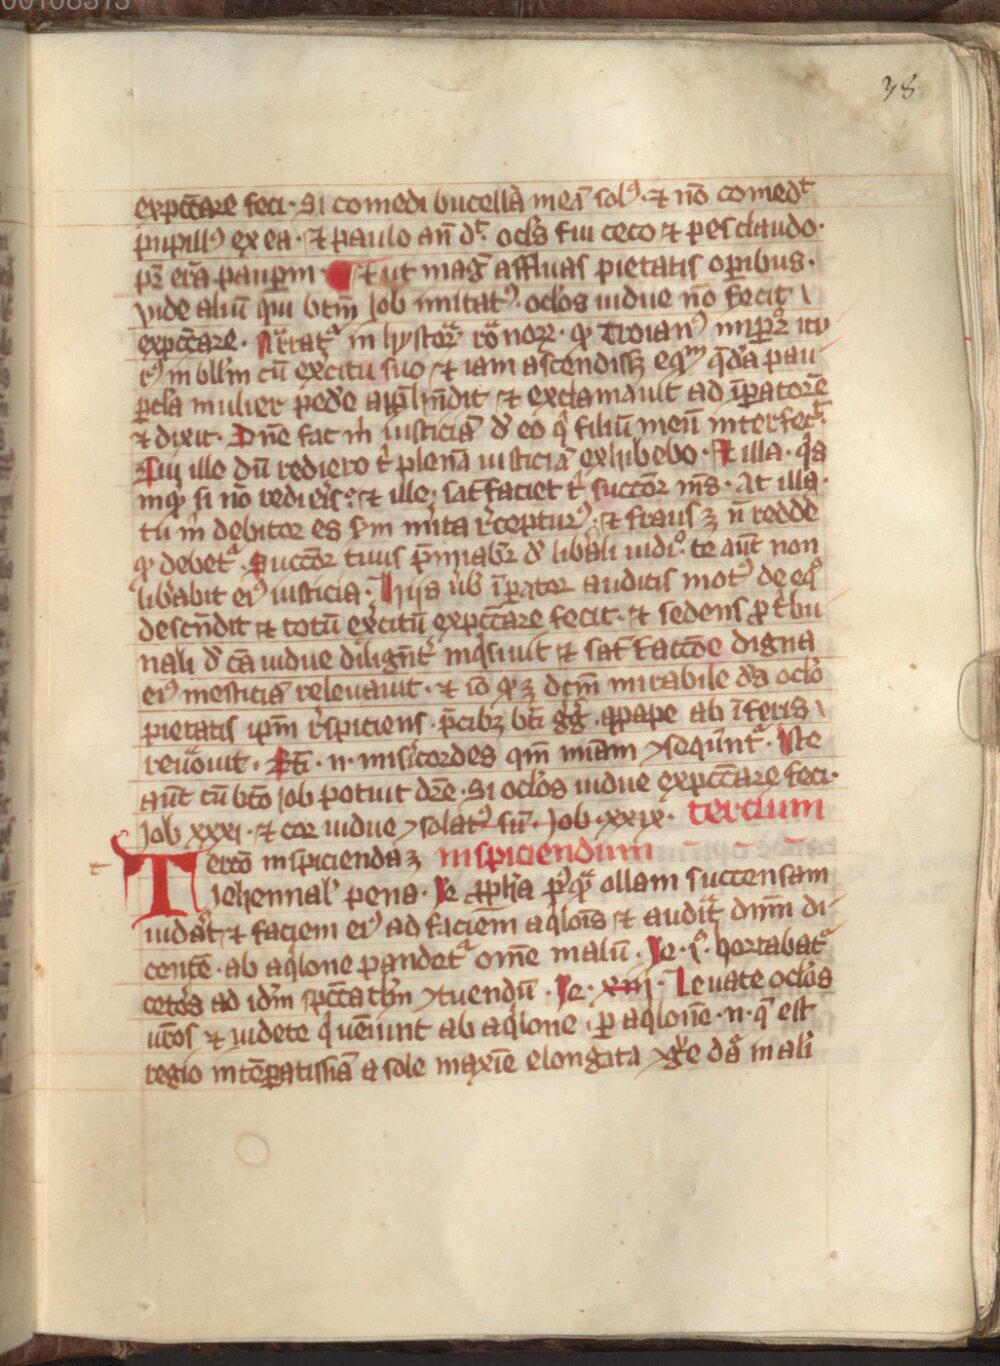 00108313
38
expc̄tare feci · Si comedi bucellā meā sol⁹ · ⁊ nō comedt
pupill⁹ ex ea · ⁊ paulo an̄ dt · ocl's fui ceco ⁊ pes claudo ·
pr̄ erā paupm · Et ut maḡ affluas pietatis opibus ·
vide aliū qui btm̄ Job imitat⁹ · oclos uidue nō fecit
expc̄tare · Narrat in hystor romanor · qd Troian⁹ impr itu
r⁹ in bllm cū excitu suo ⁊ iam ascendiss; eqm qdā pau
pcla mulier pede app̄hndit ⁊ exclamauit ad īpatorē
⁊ dixit · Dn̄e fac m iusticiā d' eo q filiū meū interfect ·
Cui ille dū rediero t plenā iusticiā exhibebo · Et illa · qd
inqd si nō redieris · ⁊ ille · satffaciet t succor ms · At illa ·
tu m debitor es sm mita rceptur⁹ · ⁊ fraus ; n̄ redde
qd debet · Succor tuus p̄miabr d' libali iudio · te aūt non
libabit ei⁹ iusticia · Hijs ūb īpator auditis mot⁹ de eqo
descn̄dit ⁊ totū excitū expc̄tare fecit · ⁊ sedens p tbu
nali d' cā uidue diligent inqsiuit ⁊ satffactōe digna
ei⁹ mesticiā releuauit · ⁊ iō qd ; dcm̄ mirabile d's oclo
pietatis ipm rspiciens · p̄cib; bti gḡ · pape ab īferis
reuocauit · Bti · n · misicordes qm̄ miam ɔsequnt · Iste
aūt cū bto Job potuit dre · Si oclos uidue expc̄tare feci ·
Job xxxi · ⁊ cor uidue ɔsolat⁹ sū · Job · xxix · tercium
Tercō inspicienda ; inspiciendum
Jehennal' pena · Je pphia pqā ollam succensam
uidāt ⁊ faciem ei⁹ ad faciem aqlois ⁊ audit dnm di
centē · ab aqlone pandet om̄e malū · Je · i · hortabat
cetos ad idm spc̄tatlm ɔtuendū · Je · xiij · Leuate oclos
uros ⁊ uidete q ueniunt ab aqlone · p aqlonē · n · q est
regio intēpatissīa a sole maxīe elongata ɔgre da mali